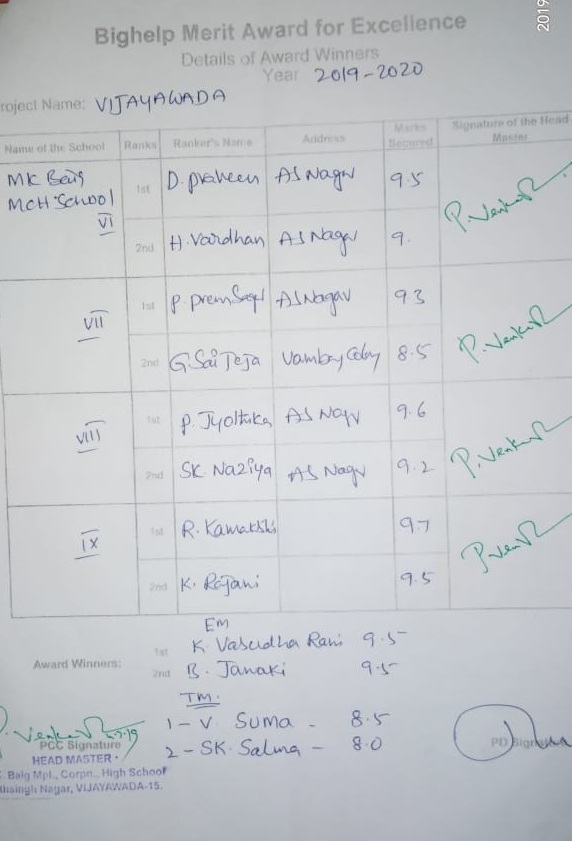 2019
Bighelp Merit Award for Excellence
Details of Award Winners
Year 2019-2020
roject Name: VIJAYAWADA
Name of the School Ranks Ranker's Name Address Marks Secured Signature of the Head Master
MK Baig
MCH School
VI
1st D. praveen AS Nagar 9.5 P. Venkat
2nd H. Vardhan AS Nagar 9.
VII
1st P. prem AS Nagar 93 P. Venkat
2nd G. Sai Teja Vambay Colony 8.5
VIII
1st P. Jyothika AS Nagar 9.6 P. Venkat
2nd SK. Naziya AS Nagar 9.2 
IX
1st R. Kamakshi 97
2nd K. Rajani 9.5
EM
1st K. Vasudha Rani 9.5
Award Winners:
2nd B. Janaki 9.5
TM.
1- V. Suma - 8.5
2- SK. Salma - 8.0
PCC Signature
HEAD MASTER
Baig Mpl., Corpn., High School
singh Nagar, VIJAYAWADA-15.
PD